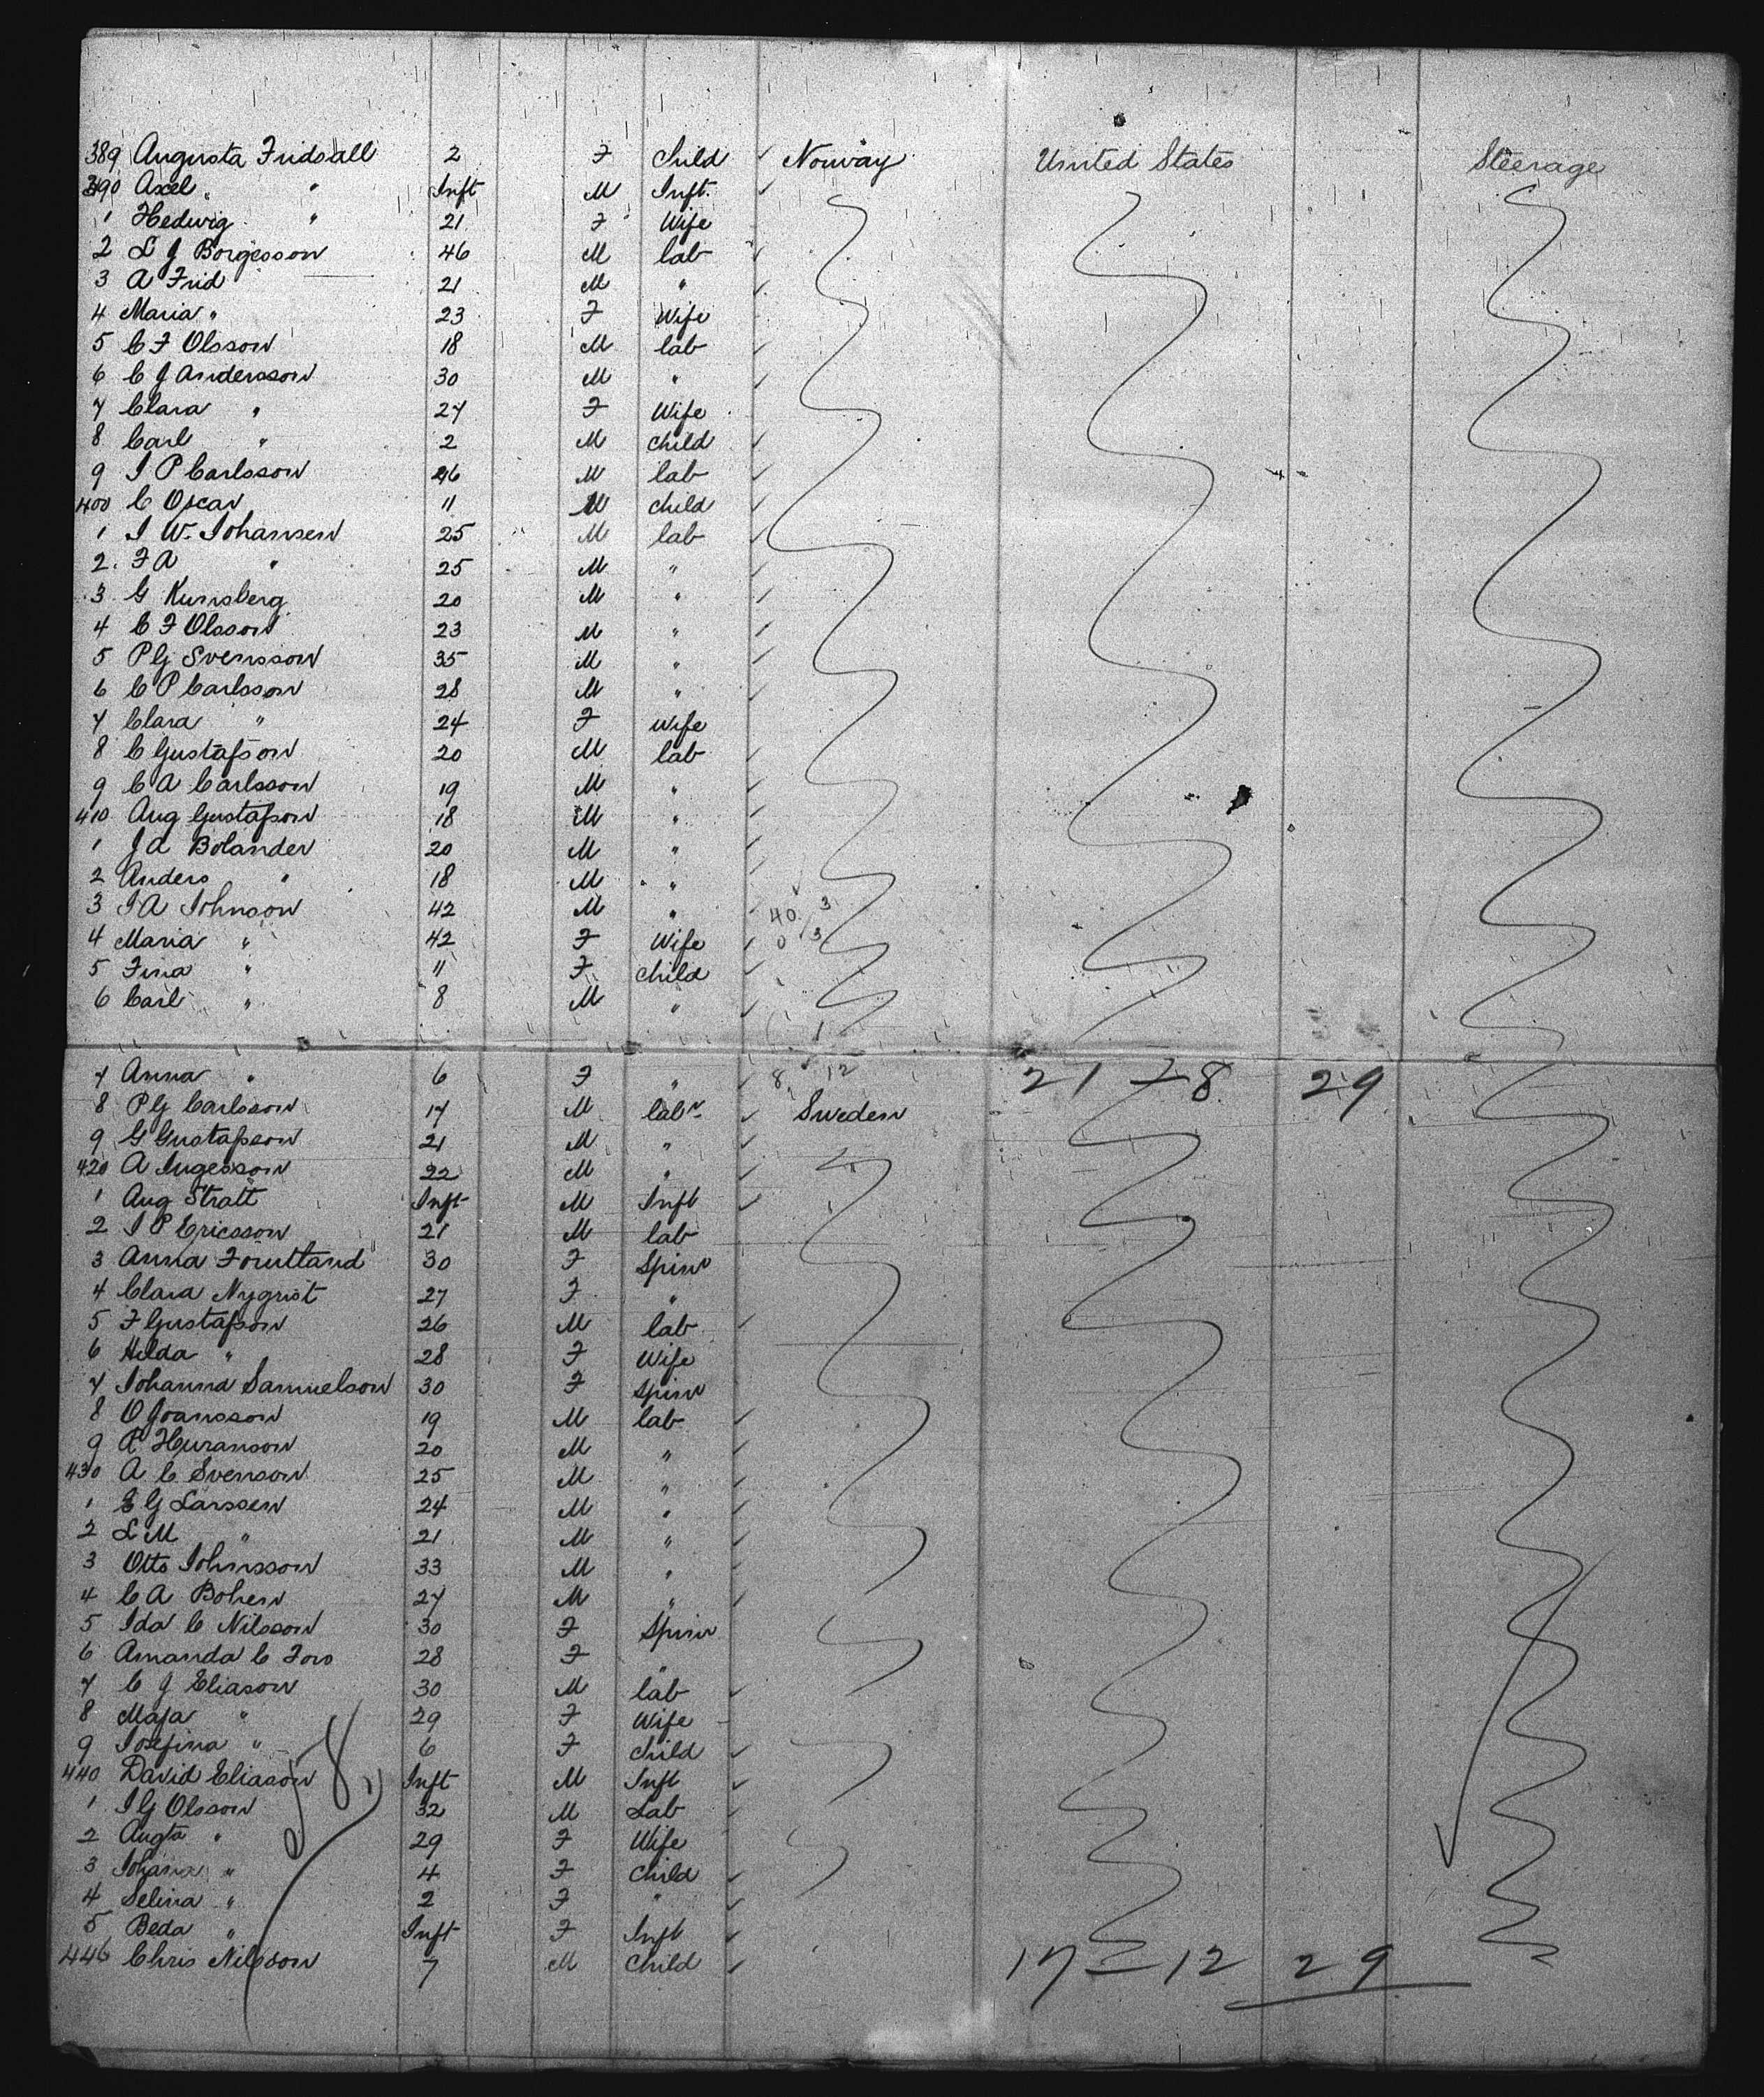 389 Augusta Fridsall 2 F Child ✓ Norway United States Steerage
390 Axel " " Inft M Inft. ✓
1 Hedwig " 21 F Wife
2 L J Borgesson 46 M lab ✓
3 A Frid 21 M " ✓
4 Maria " 23 F Wife
5 C F Olsson 18 M lab ✓
6 C J Andersson 30 M " ✓
7 Clara " 27 F Wife
8 Carl " 2 M child ✓
9 I P Carlsson 46 M lab ✓
400 C Oscar 11 M child ✓
1 I W. Johansen 25 M lab ✓
2. F A " 25 M " ✓
3 G Kunsberg 20 M " ✓
4 C F Olsson 23 M " ✓
5 P G Svensson 35 M " ✓
6 C P Carlsson 28 M " ✓
7 Clara " 24 F Wife
8 C Gustafson 20 M lab ✓
9 C A Carlsson 19 M " ✓
410 Aug Gustafson 18 M " ✓
1 J A Bolander 20 M " ✓
2 Anders " 18 M " ✓
3 I A Johnson 42 M " 40 3
4 Maria " 42 F Wife ✓ 0 3
5 Fina " 11 F child ✓
6 Carl " 8 M " ✓
1
7 Anna " 6 F " ✓ 8 12 21 - 8 29
8 P G Carlsson 17 M labr ✓ Sweden
9 G Gustafson 21 M " ✓
420 A Ingesson 22 M " ✓
1 Aug Stratt Inft M Inft ✓
2 I P Ericsson 21 M lab
3 Anna 30 F Spinr
4 Clara Nygrist 27 F "
5 F Gustafson 26 M lab ✓
6 Hilda " 28 F Wife
7 Johanna Samuelson 30 F spinr
8 O Joansson 19 M lab ✓
9 20 M " ✓
430 A C Svenson 25 M " ✓
1 E G Larssen 24 M " ✓
2 L M " 21 M " ✓
3 Otto Johnsson 33 M " ✓
4 C A Bohen 27 M " ✓
5 Ida C Nilsson 30 F Spinr
6 Amanda C 28 F "
7 C J Eliason 30 M lab ✓
8 Maja " 29 F Wife
9 Josefina " 6 F child ✓
440 David Eliason Inft M Inft ✓
1 I G Olsson 32 M Lab ✓
2 Augta " 29 F Wife
3 Johana " 4 F Child ✓
4 Selina " 2 F " ✓
5 Beda " Inft F Inft ✓
446 Chris Nilsson 7 M Child ✓ 17 - 12 29